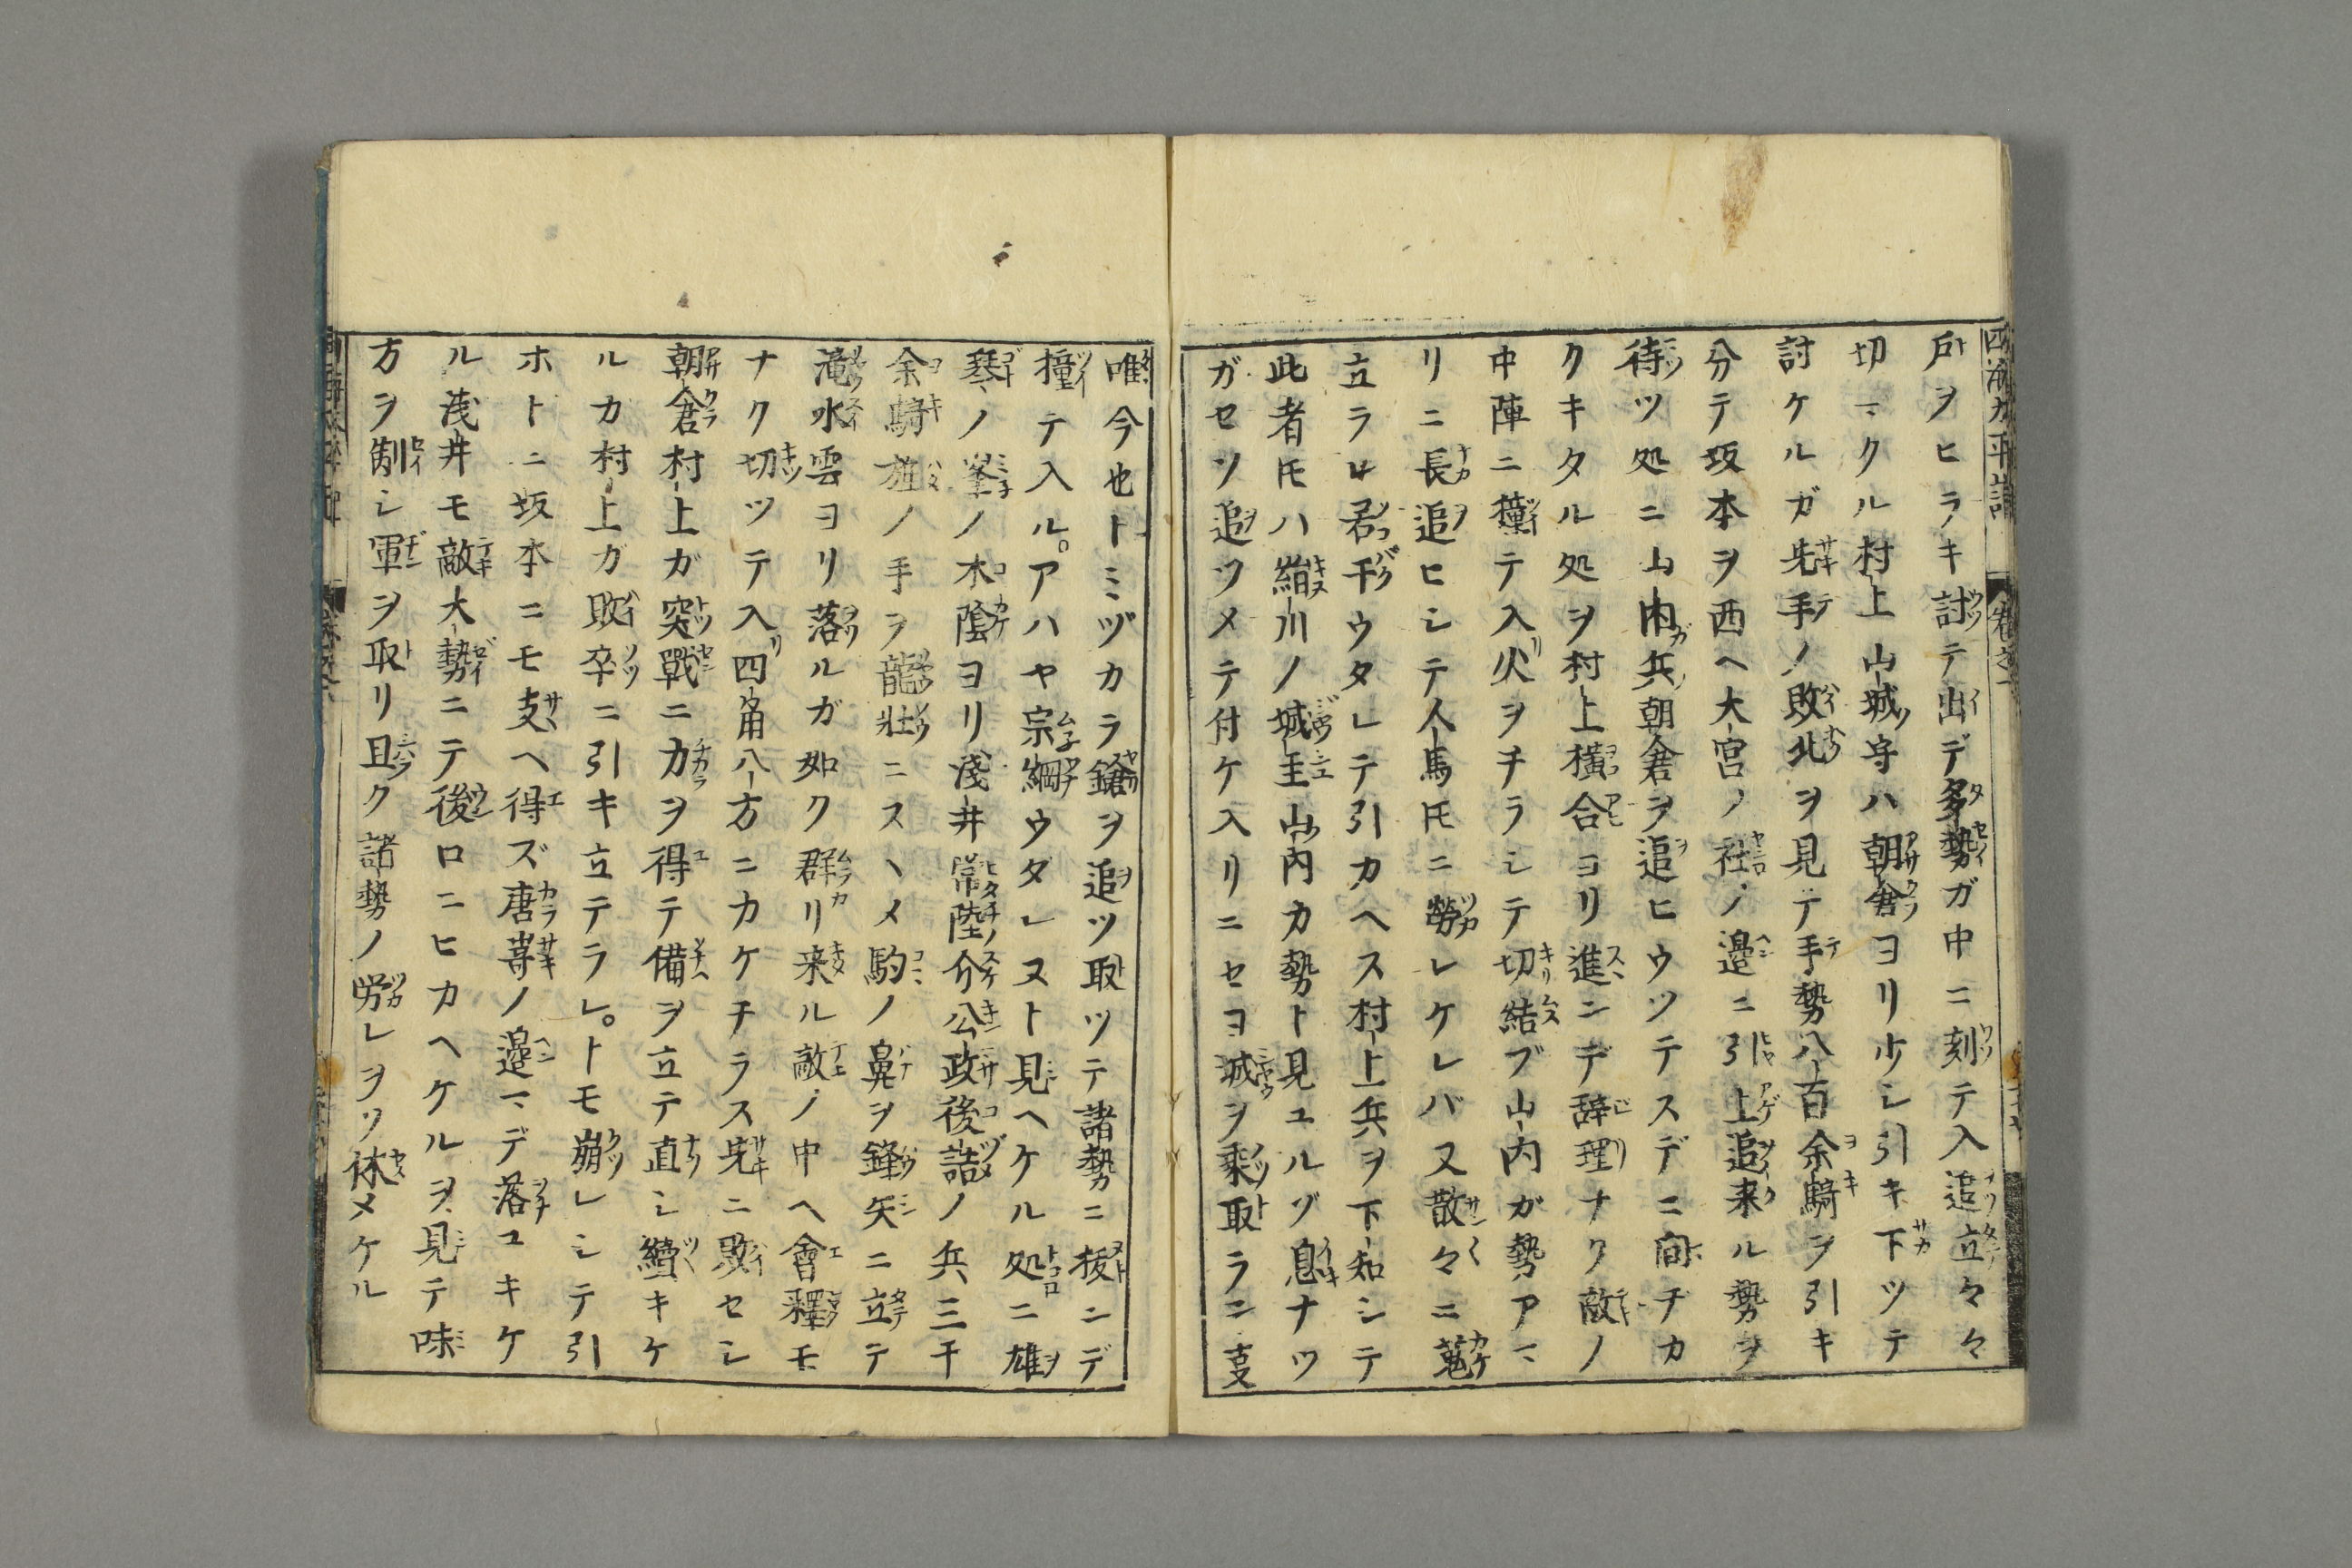 戸ヲヒラキ討テ出デ多勢ガ中ニ刻テ入追立々々
切マクル村上山城守ハ朝倉ヨリ少シ引キ下ツテ
討ケルガ先手ノ敗北ヲ見テ手勢八百余騎ヲ引キ
分テ坂本ヲ西ヘ大宮ノ社ノ邉ニ引上追来ル勢ヲ
待ツ処ニ山内ガ兵朝倉ヲ追ヒウツテスデニ間ヂカ
クキタル処ヲ村上横合ヨリ進ンデ辞理ナク敵ノ
中陣ニ撞テ入火ヲチラシテ切結ブ山内ガ勢アマ
リニ長追ヒシテ人馬𪜈ニ勞レケレバ又散々ニ蒐
立ラレ若干ウタレテ引カヘス村上兵ヲ下知シテ
此者𪜈ハ絹川ノ城主山内カ勢ト見ユルゾ息ナツ
ガセソ追ツメテ付ケ入リニセヨ城ヲ乗取ラン支
唯今也トミヅカラ鎗ヲ追ツ取ツテ諸勢ニ抜ンデ
撞テ入ル。アハヤ宗綱ウタレヌト見ヘケル処ニ雄
琴ノ峯ノ木陰ヨリ浅井常陸介公政後詰ノ兵三千
余騎旌ノ手ヲ龍壯ニスヽメ駒ノ鼻ヲ鋒矢ニ立テ
滝水雲ヨリ落ルガ如ク群リ来ル敵ノ中ヘ會釋モ
ナク切ツテ入四角八方ニカケチラス先ニ敗セシ
朝倉村上ガ突戰ニ力ヲ得テ備ヲ立テ直シ續キケ
ルカ村上ガ敗卒ニ引キ立テラレ。トモ崩レシテ引
ホトニ坂本ニモ支ヘ得ズ唐嵜ノ邉マデ落ユキケ
ル浅井モ敵大勢ニテ後ロニヒカヘケルヲ見テ味
方ヲ制シ軍ヲ取リ且ク諸勢ノ労レヲソ休メケル